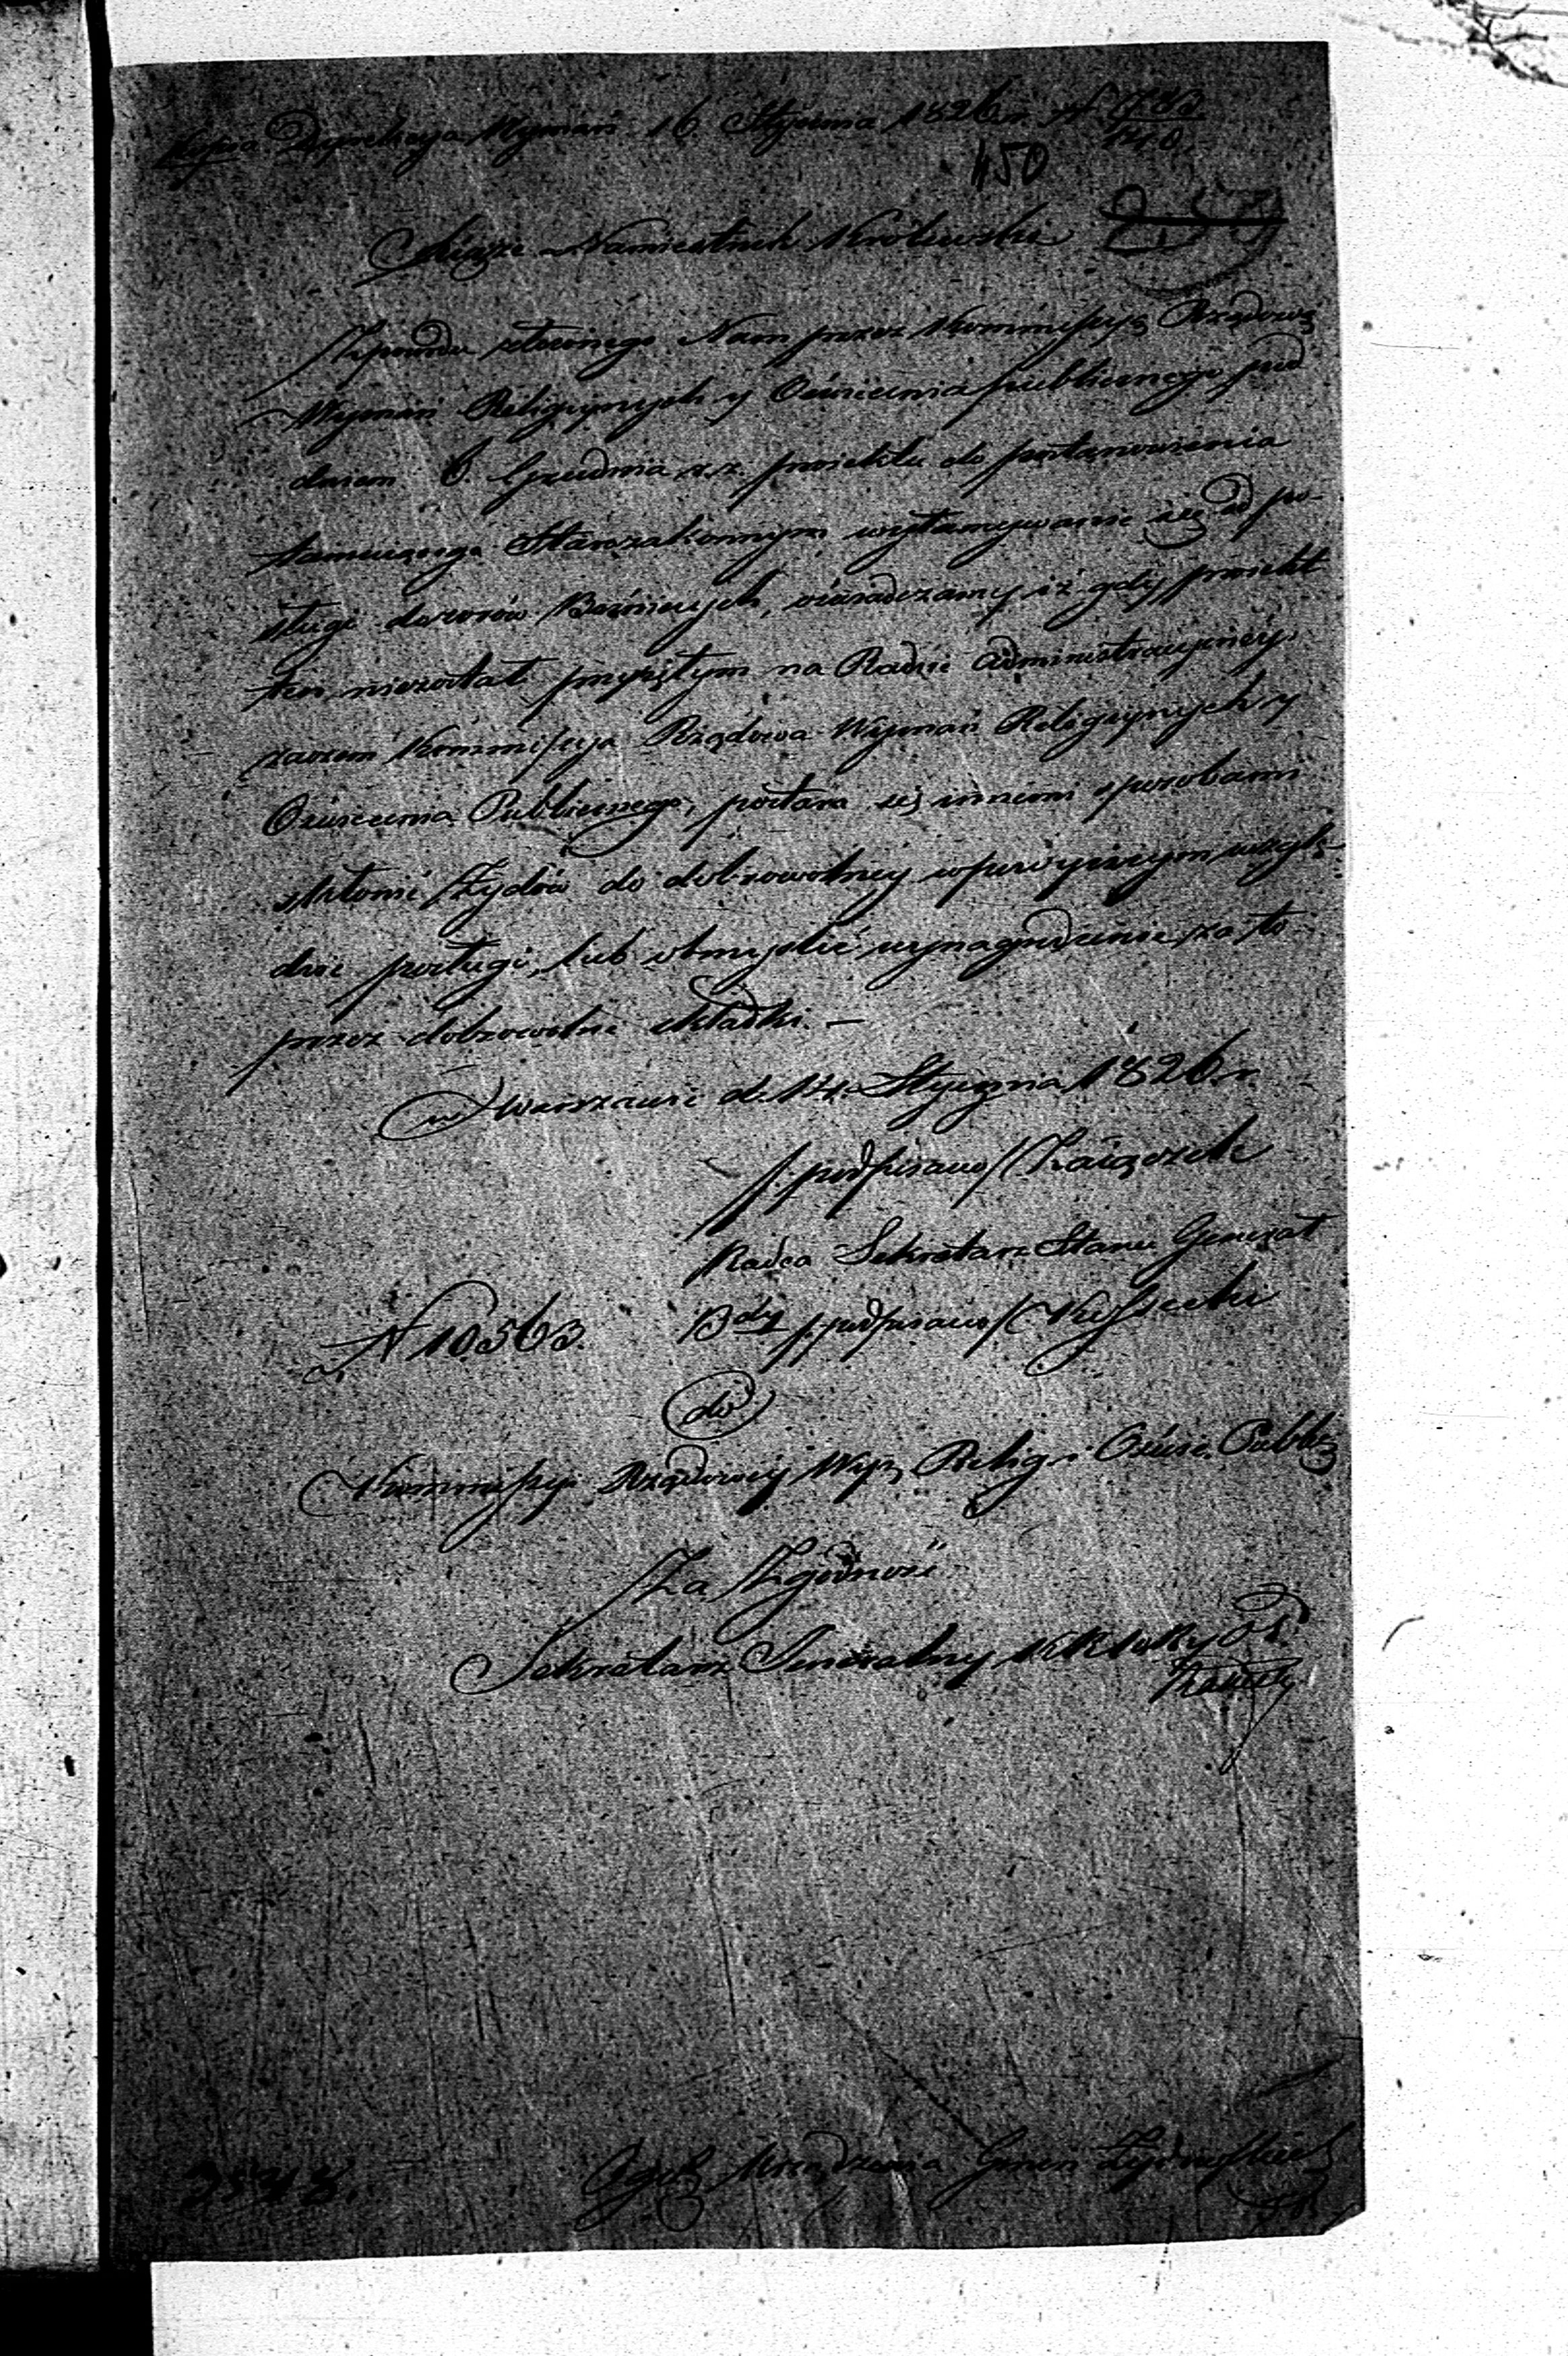 Kopia Dyrekcya Wyznań 16 Stycznia 1826 r. N 
140
450
Xiąże Namiestnik Królewski
Z powodu złożonego Nam przez Kommissyą Rządową
Wyznań Religiynych y Oświecenia publicznego pod
dniem 6. Grudnia z. r. proiektu do postanowienia
tamuiącego Starozakonnym wyłamywanie się od po-
sługi dozorów Bożniczych, oświadczamy iż gdy proiekt
ten niezostał przyiętym na Radzie Administracyiney
zaczem Kommissyja Rządowa Wyznań Religiynych y
Oświecenia Publicznego, postara się innemi sposobami
skłonić Żydów do dobrowolney w powyższym wzglę-
dzie posługi, lub obmyślić wynagrodzenie za to
przez dobrowolne składki. —
w Warszawie d. 14. Stycznia 1826 r.
/. podpisano / Zaiączek
Radca Sekretarz Stanu Generał
N 10563. Bdy /. podpisano / Kossecki
do
Kommissyi Rządowey Wyz. Relig. i Oświe. Publicz
Za Zgodność
Sekretarz Generalny
Ogół Urządzenia Gmin Żydowskich